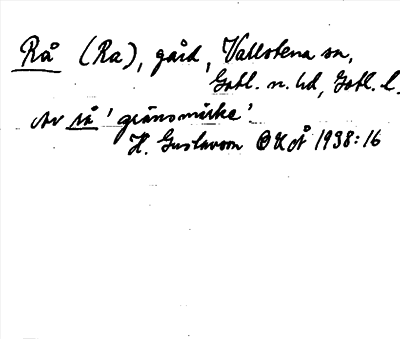 Rå (Ra), gård, Vallstena sn,
Gotl. n. hd, Gotl. l.
Av rå 'gränsmärke'
H. Gustavson OUÅ 1938:16